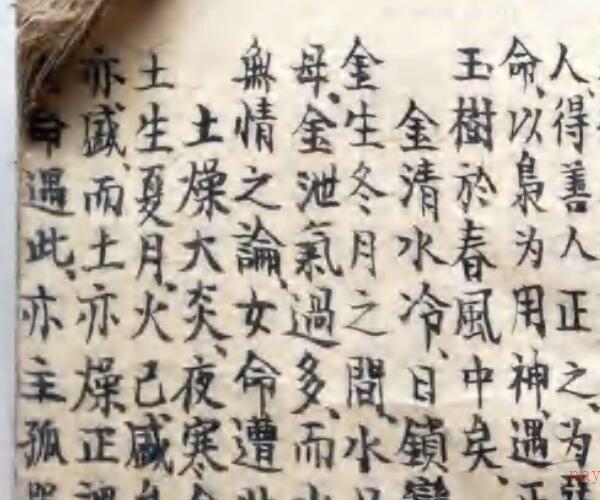 人得善人正之为
命、以梟为用神、遇
玉樹於春風中矣、
金清水冷、日鎖鸞
金生冬月之間、水
母、金泄氣過多、而
無情之論、女命遭
土燥大炎、夜寒
土生夏月、火已盛
亦盛、而土亦燥正謂
命遇此、亦主孤